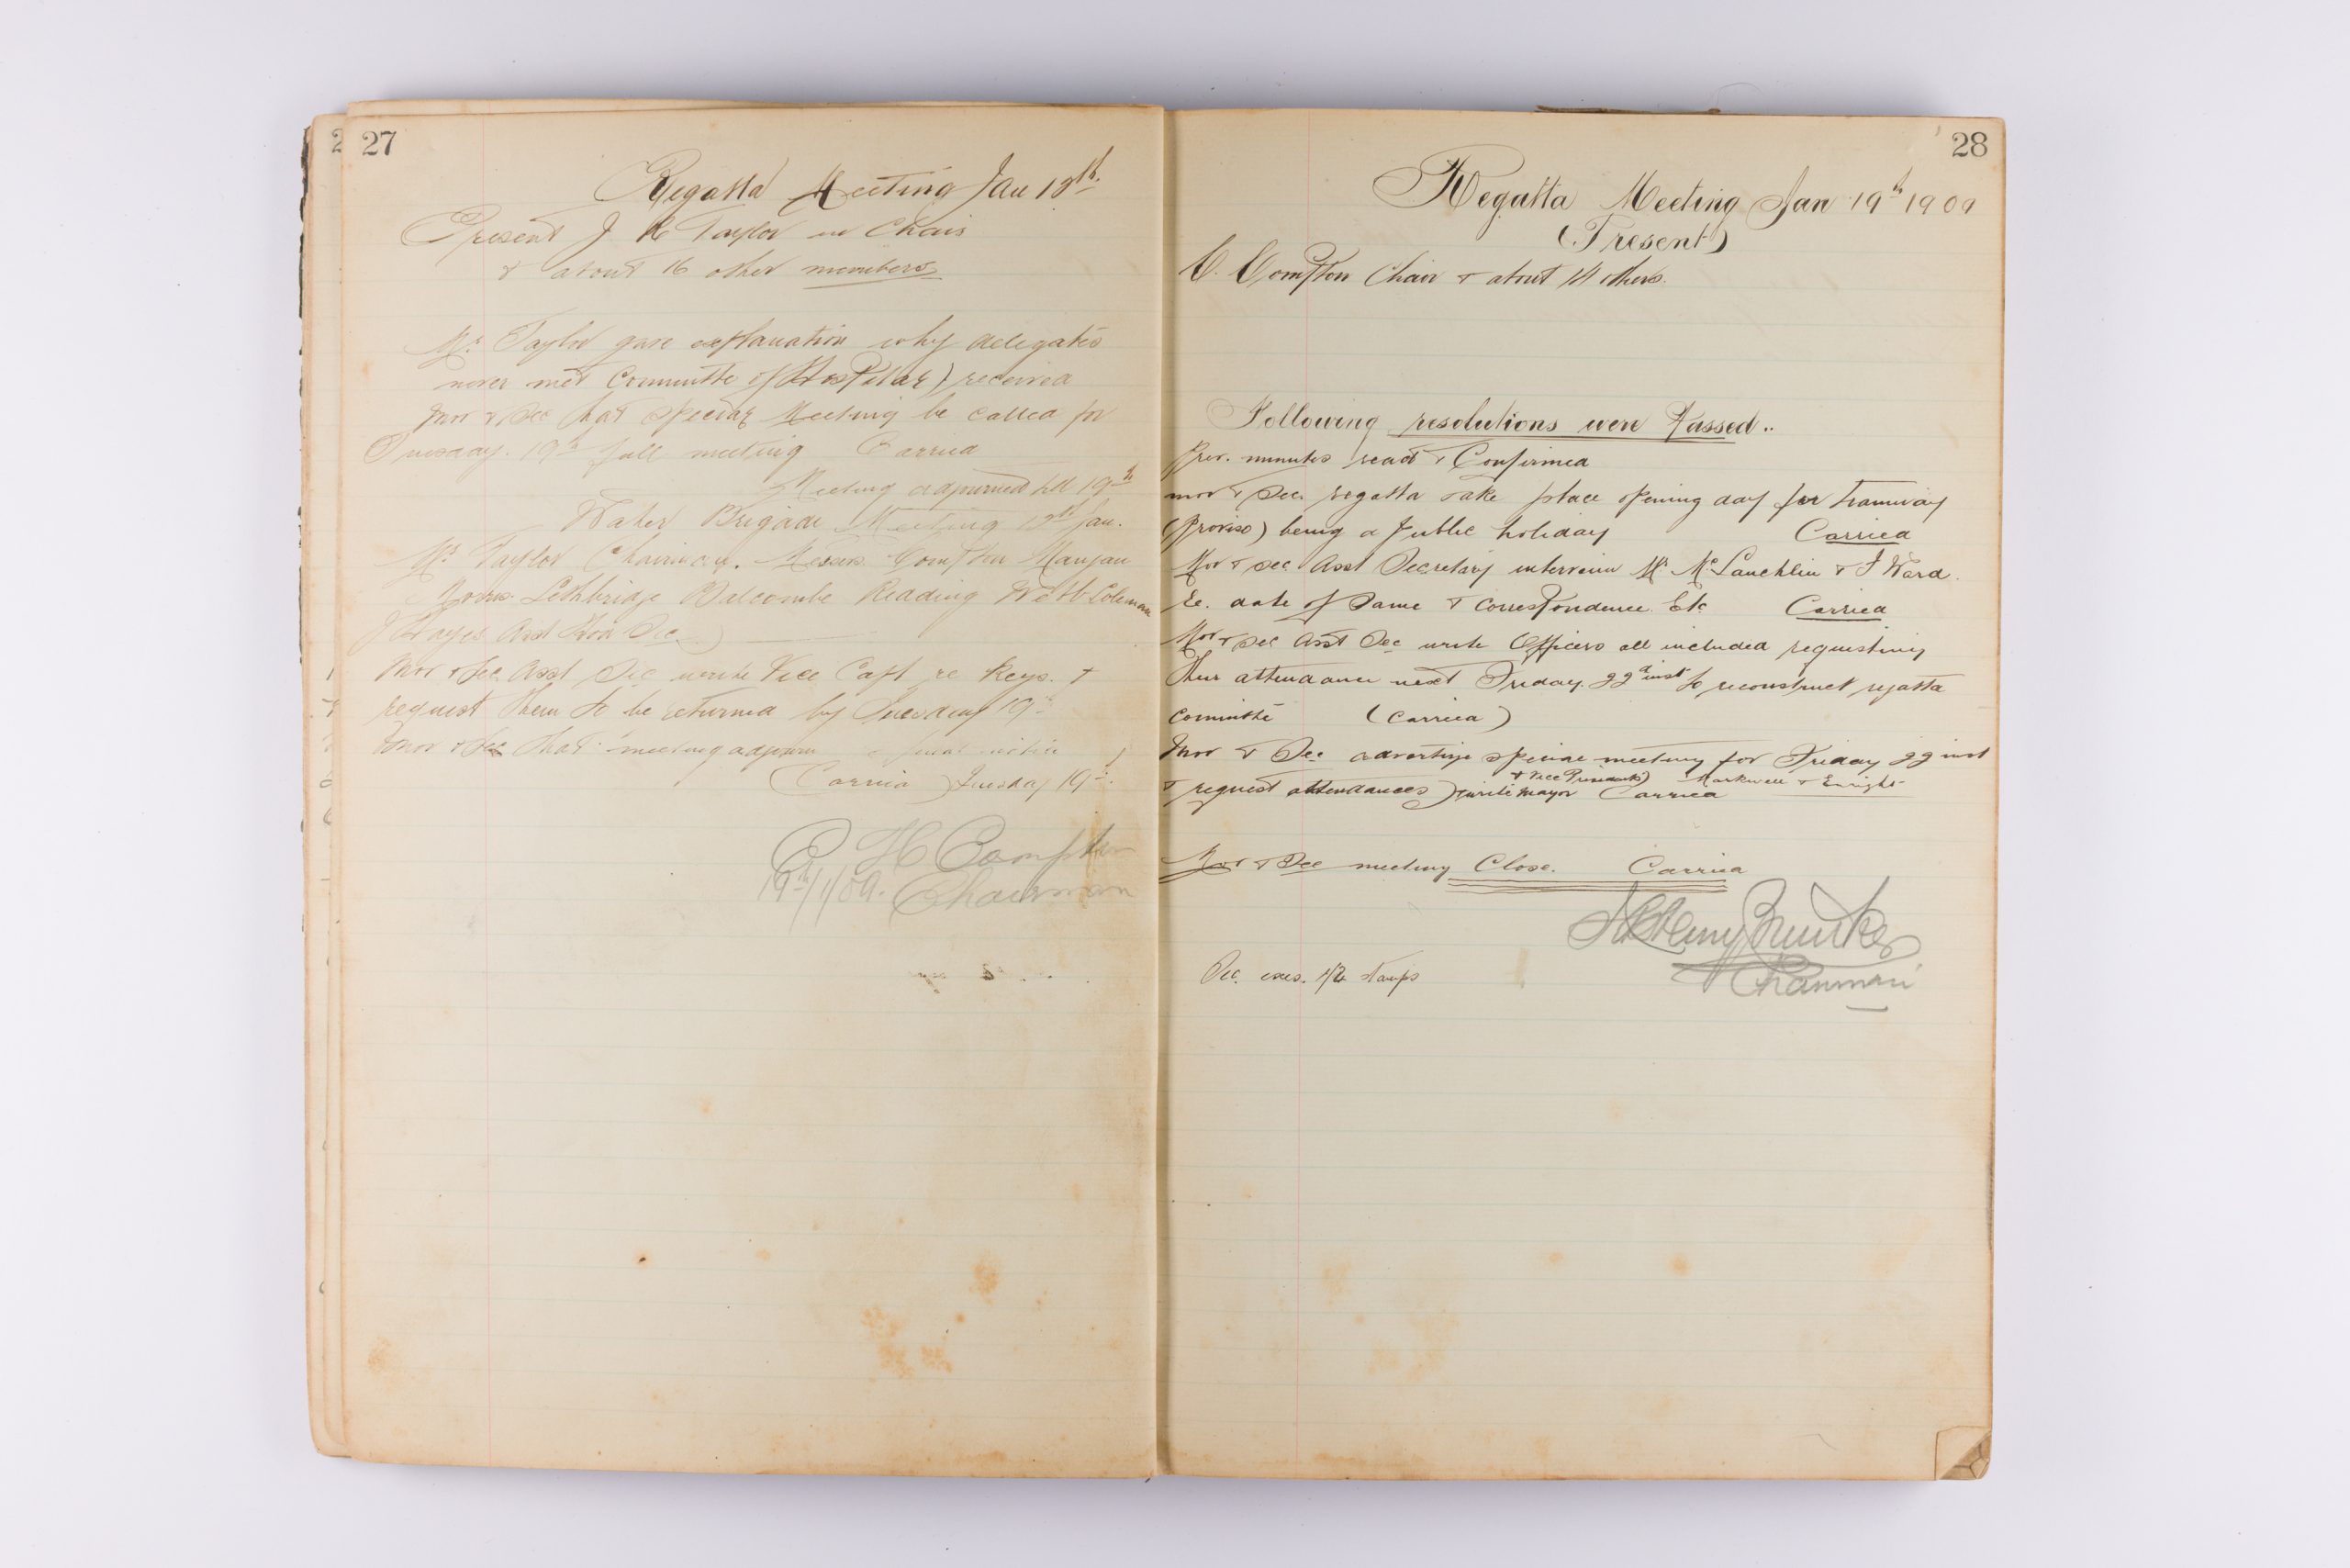 27
Regatta Meeting Jan 12th
Present J R Taylor in Chair
& about 16 other members
Mr Taylor gave explanation why delegates
never met Committe of Hospital) received
Mov & Sec that special Meeting be called for
Tuesday. 19th full meeting Carried
Meeting adjourned till 19th
Water Brigade Meeting 12th Jan.
Mr Taylor Chairman. Messrs Compton Manjan
Morris Lethbridge Balcombe Reading Webb Coleman
J Hayes Asst Hon Sec)
Mov & Sec Asst Sec write Vice Capt re keys. &
request them to be returned by Tuesday 19th
Mov & Sec that meeting adjourn
(Carried) Tuesday 19th
C H Compton
19th/1/09. Chairman
28
Regatta Meeting Jan 19th 1909
(Present)
C. Compton Chair & about 14 others.
Following resolutions were Passed..
Prev. minutes read & Confirmed
mov & Sec. regatta take place opening day for tramway
(Proviso) being a Public holiday Carried
Mov & Sec Asst Secretary interview Mr McLauchlin & J Ward.
re. date of same & correspondence Etc Carried
Mov & Sec Asst Sec write Officers all included requesting
their attendance next Friday. 22nd inst to reconstruct regatta
committe (Carried)
Mov & Sec advertise special meeting for Friday 22 inst
& Vice Presidents) Markwell & Enright
& request attendances) write Mayor Carried
Mov & Sec meeting Close. Carried
Chairman
Sec. exes. 1/2 stamps